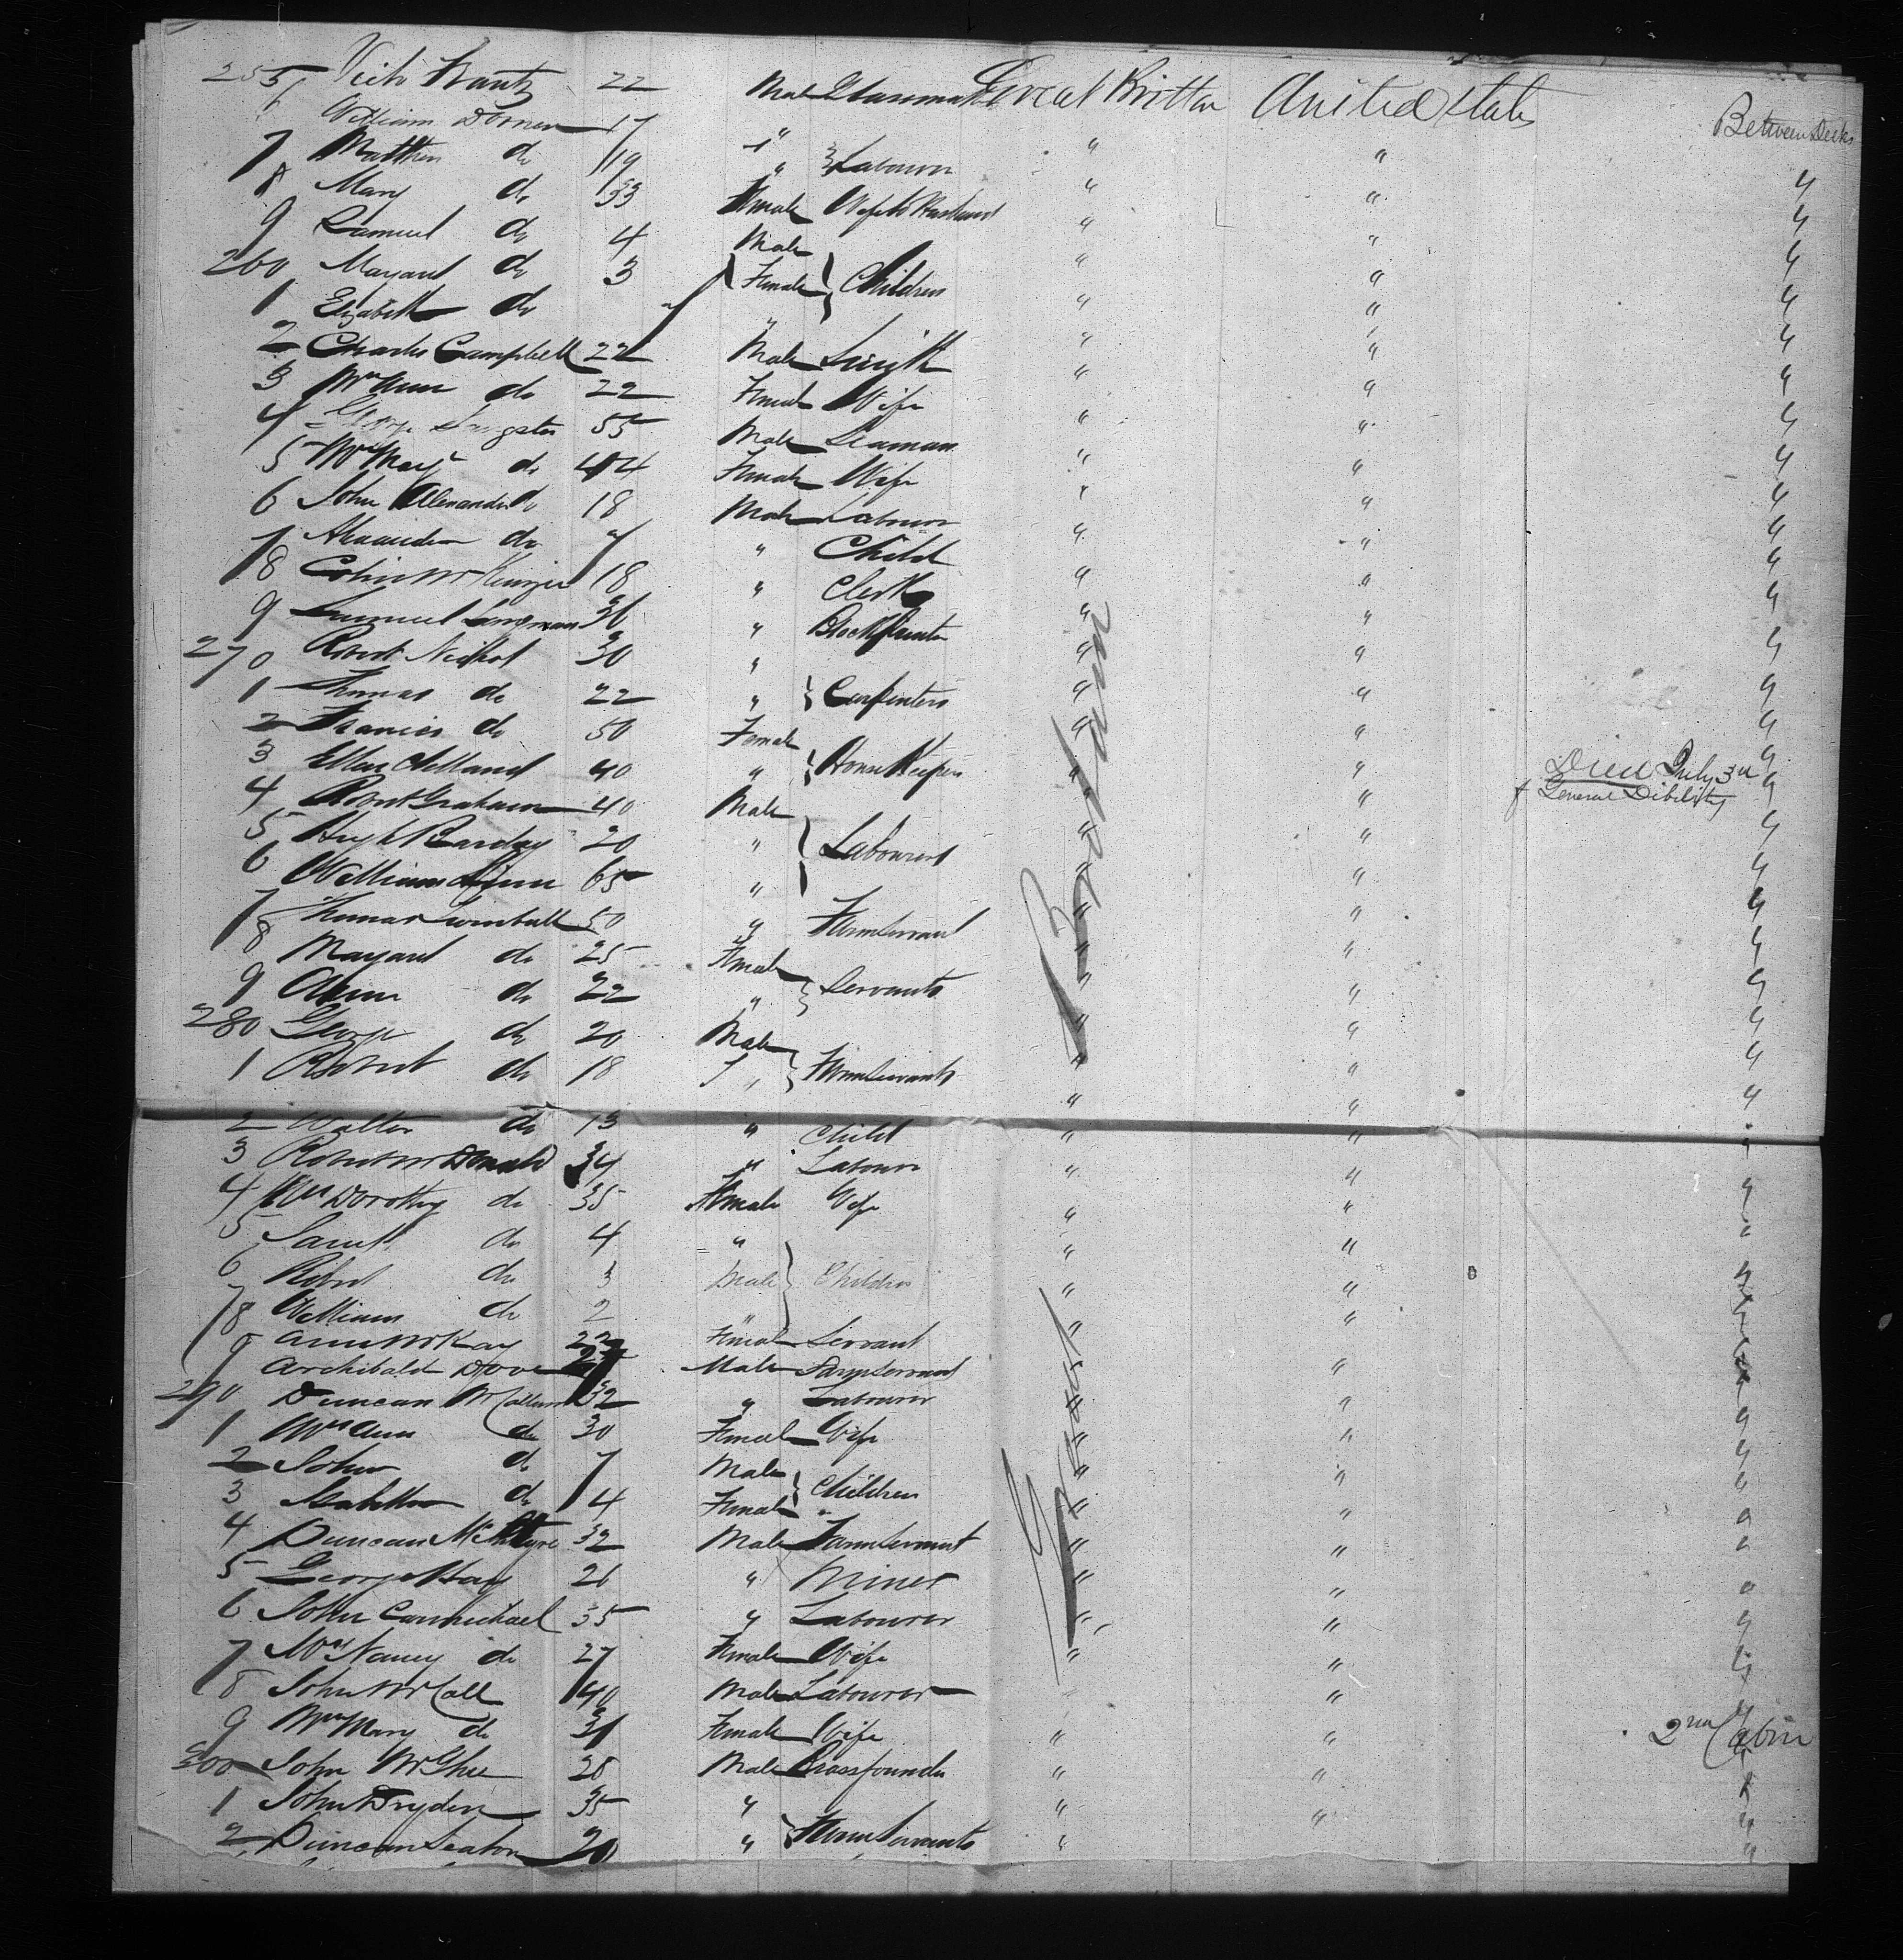 255 22 Male Great Brittan United States Between Decks
6 William 17 "
7 Matthew do 19 " } Labourer " "
8 Mary do 33 Female Wife to Husband " "
9 Samuel do 4 Male " "
260 Margaret do 3 Female } Children " "
1 Elizabeth do " " "
2 Charles Campbell 22 Male Smith " "
3 Mrs Ann do 22 Female Wife " "
4 George Sangster 55 Male Seaman " "
5 Mrs Mary do 44 Female Wife " "
6 John Alexander do 18 Male Labourer " "
7 Alexander do 7 " Child " "
8 Colin McKenzie 18 " Clerk " "
9 Samuel Longman 36 " Blockprinter " "
270 Robert Nichol 30 " " "
1 Thomas do 22 " } Carpenters " "
2 Francis do 50 Female " "
3 Ellen Clelland 40 " } House Keeper " " Died July 3rd
4 Robert Graham 40 Male " " of General Dibility
5 Hugh Barclay 20 " } Labourers " "
6 William 65 " " "
7 Thomas Turnbull 50 " Farm Servant " "
8 Margaret do 25 Female " "
9 Ann do 22 " } Servants " "
280 George do 20 Male " "
1 Robert do 18 " } Farm Servants " "
2 Walter do 13 " Child " "
3 Robert McDonald 34 " Labourer " "
4 Mrs Dorothy do 35 Female Wife " "
5 Janet do 4 " " "
6 Robert do 3 Male } Children " "
7 William do 2 " " "
8 Ann McKay 22 Female Servant " "
9 Archibald Dove Male Farm Servant " "
290 Duncan McCallum 32 " Labourer " "
1 Mrs Ann do 30 Female Wife " "
2 John do 7 Male " "
3 Isabella do 4 Female } Children " "
4 Duncan McIntyre 32 Male Farm Servant " "
5 George Hay 26 " Miner " "
6 John Carmichael 35 " Labourer " "
7 Mrs Nancy do 27 Female Wife " "
8 John McCall 40 Male Labourer "
9 Mrs Mary do 31 Female Wife " " 2nd Cabin
300 John McGhee 28 Male Brassfounder " "
1 John Dryden 35 " " "
2 Duncan Seaton 20 " } Farm Servants "
Great Britain